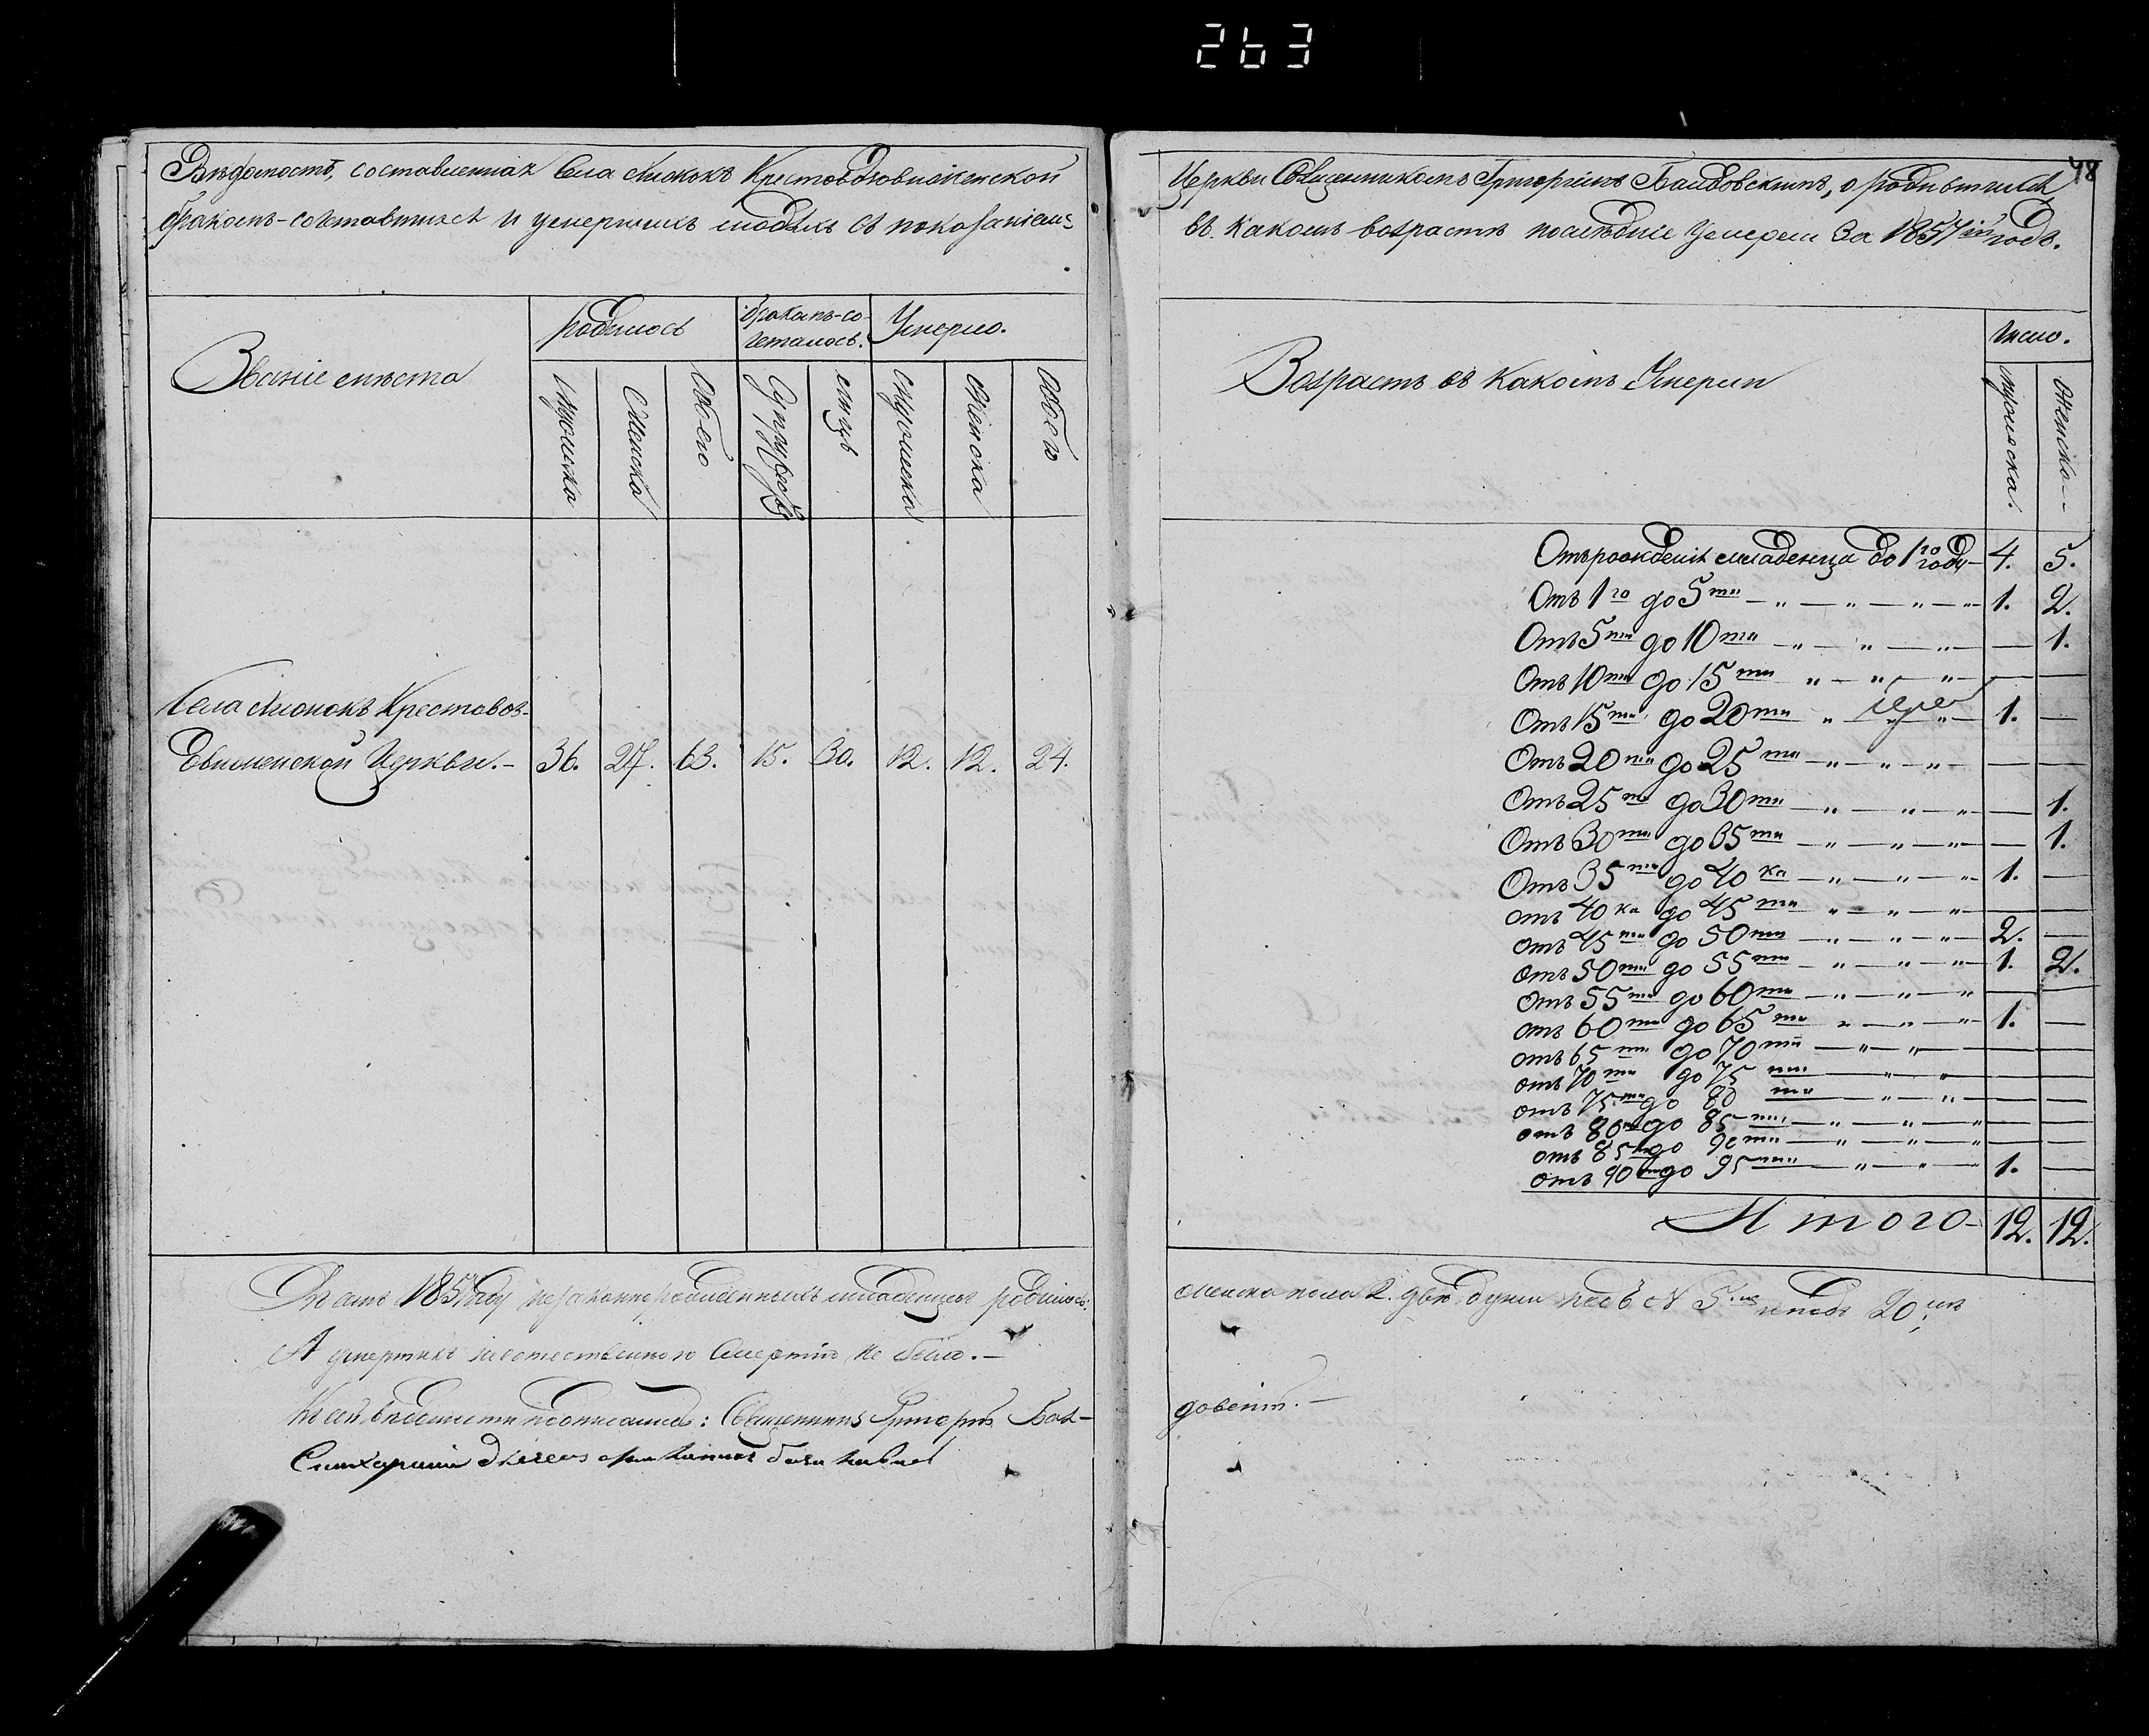 263
48
Вѣдомость, составленная Села Люнокъ Крестовоздвиженской
бракомъ-сочетавшихся и умершихъ людяхъ съ показаніемъ
Званіе мѣста
родилось
Бракомъ-со-
четалось.
Умерло.
Мужеска
Женска
Обоего
Супружествъ
лицъ
Мужеска
Женска
Обоего
Села Люнокъ Крестовоз-
движенской Церкви.- 36. 27. 63. 15. 30. 12. 12. 24.
Въ семъ 1857 году незаконнорожденныхъ младенцевъ родилось:
А умершихъ неестественною Смертію не было.-
Къ сей вѣдомости подписались: Священникъ Григорій Баи-
Церкви Священникомъ Григоріемъ Баидовскимъ, о родившихся
въ какомъ возрастѣ послѣдніе Умерли За 1857ый годъ.
Возрастъ въ какомъ Умерли
Число.
мужеска.
Женска-
Отъ рожденія младенца до 1го году- 4. 5.
Отъ 1го до 5ти - „ - „ - „ - „ - 1. 2.
Отъ 5ти до 10ти - „ - „ - „ - — 1.
Отъ 10ти до 15ти „ - „ - „ - — —
Отъ 15ти до 20ти „ „ - „ - 1. —
Отъ 20ти до 25ти - „ - „ - „ - — —
Отъ 25ти до 30ти - „ - „ - „ - — 1.
Отъ 30ти до 35ти - „ - „ - „ - — 1.
Отъ 35ти до 40ка - „ - „ - „ - 1. —
отъ 40ка до 45ти „ - „ - „ - — —
отъ 45ти до 50ти - „ - „ - „ - 2. —
отъ 50ти до 55ти - „ - „ - „ - 1. 2.
отъ 55ти до 60ти - „ - „ - „ — —
отъ 60ти до 65ти „ - „ - „ - 1. —
отъ 65ти до 70ти - „ - „ - — —
отъ 70ти до 75ти - „ - „ - — —
отъ 75ти до 80ти - „ - „ - — —
отъ 80ти до 85ти - „ - „ - „ — —
отъ 85ти до 90ти - „ - „ - „ — —
отъ 90ти до 95ти - „ - „ - „ 1. —
Итого- 12. 12.
женска пола 2. двѣ души подъ N 5мъ и подъ 20мъ
довскій.-